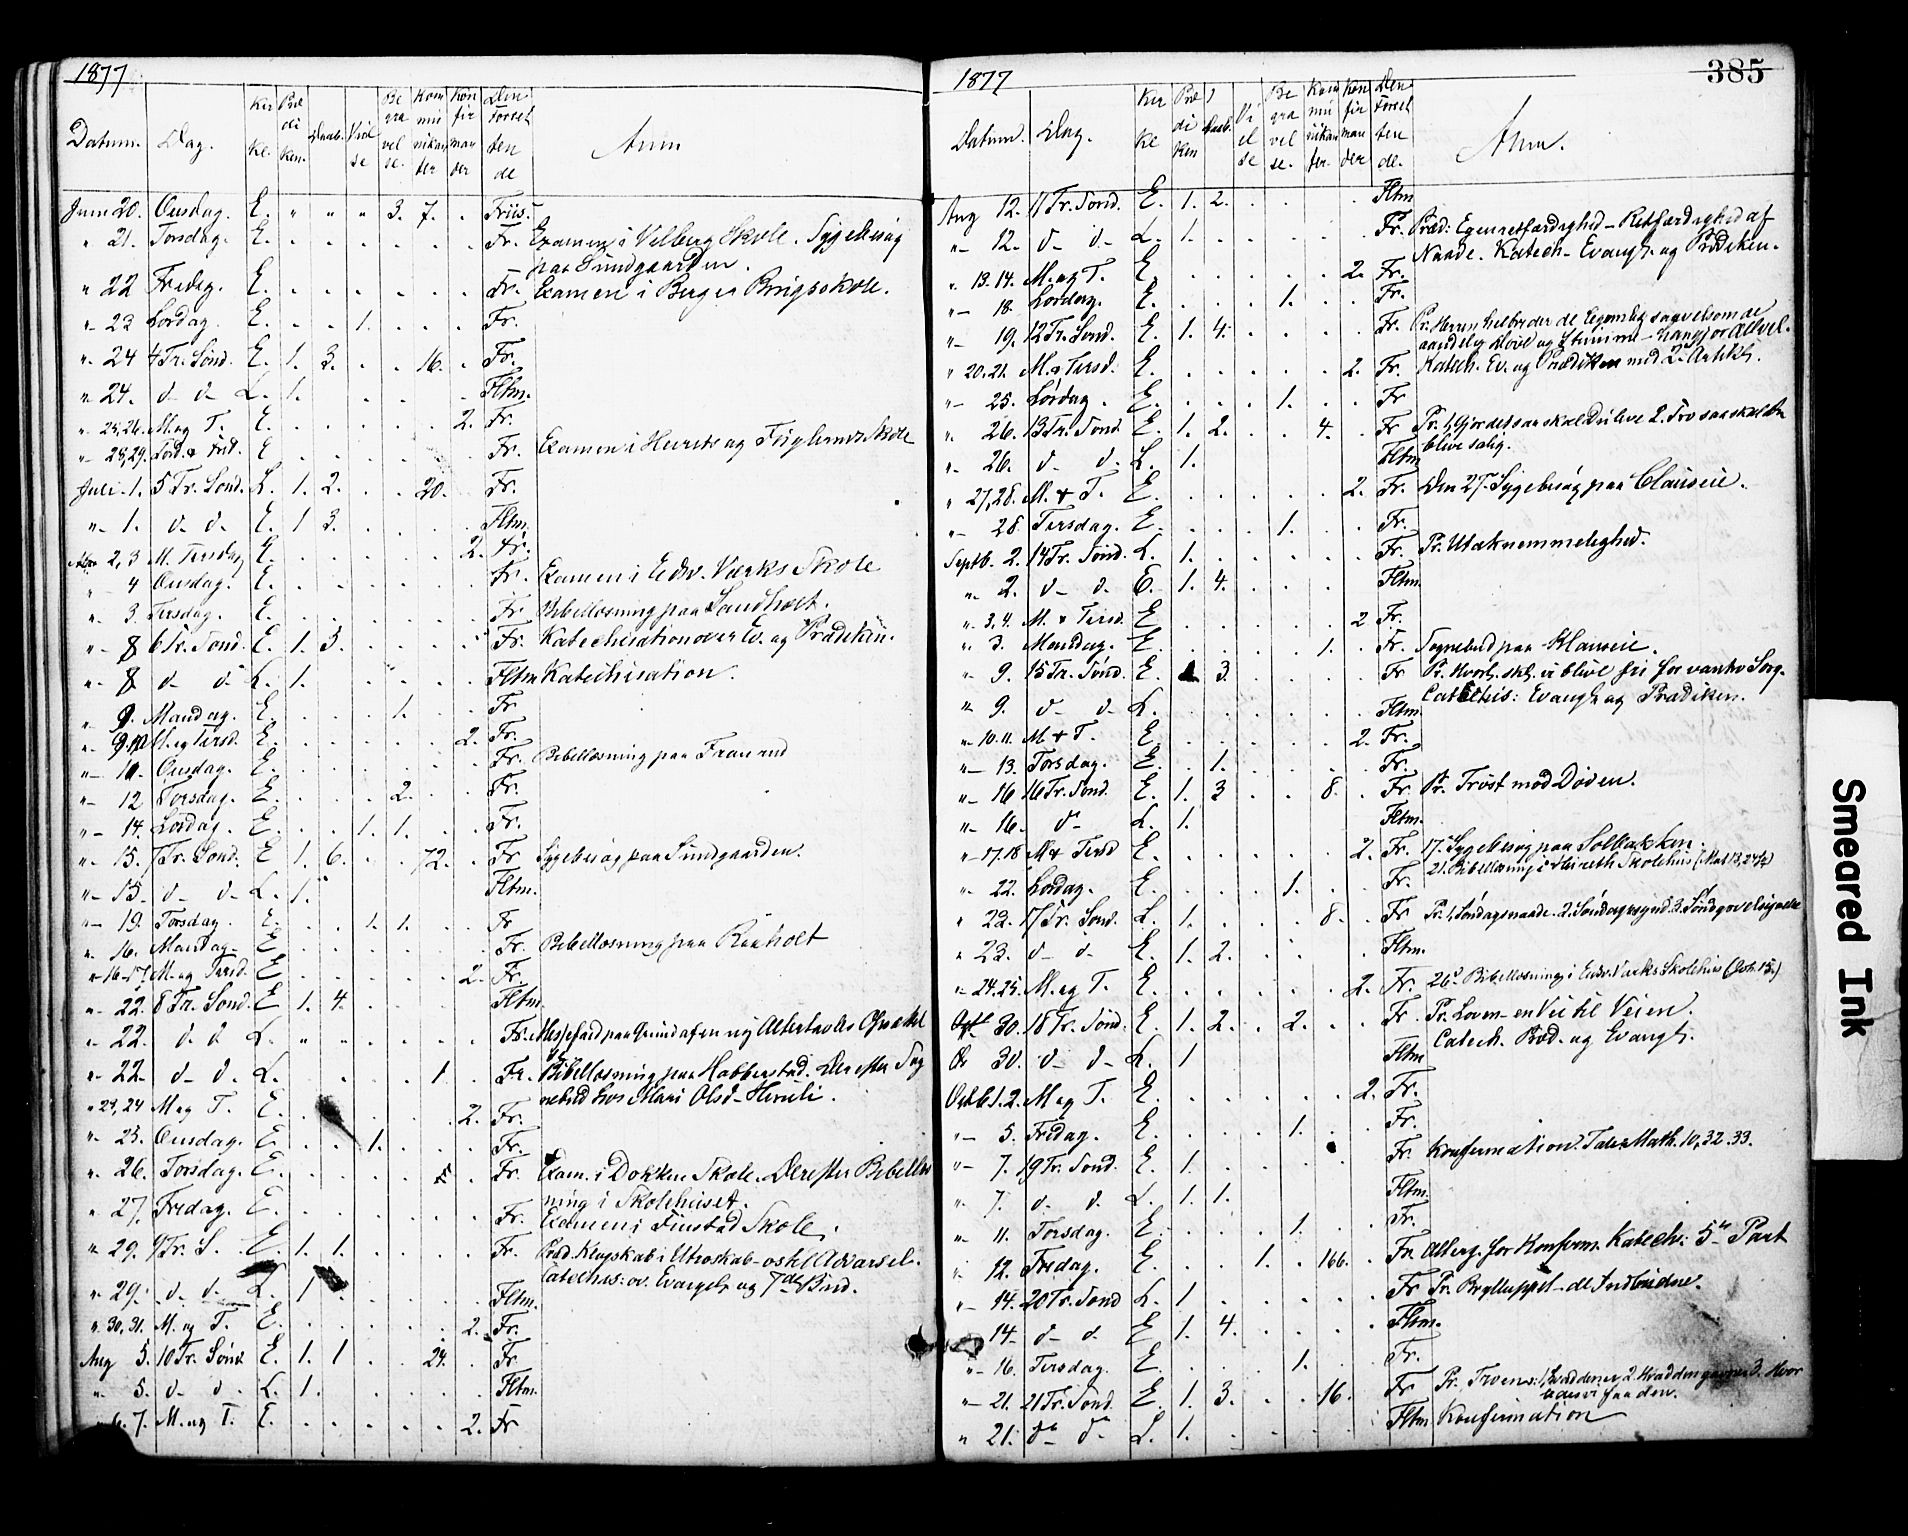 1877
Datum. Dag. Kir ke. Præ di ken. Daab. Viel se Be gra vel se. Kom mu nikan der Kon fir man der Den Forret ten de Anm
Juni 20. Onsdag. E. " " " 3. 7. . Friis.
" 21. Torsdag. E. . . . . . . Fr. Examen i Skole. Sygebesøg
paa Sundgaarden.
" 22 Fredag. E. . . . . . . Fr. Examen i Berger Skole.
" 23 Lørdag. E. . . 1. . . . Fr.
" 24 4 Tr. Sønd. E. 1. 3. . . 16. . Fr.
" 24. d- d- L. 1. . . . . Fltm.
" 25,26. M. og T. E. . . . . . 2. Fr.
" 28,29. Tord. & Fred. E . . . . . . Fr. Examen i og Skole
Juli 1. 5 Tr. Sønd. L. 1. 2. . . 20. . Fr.
" 1. d. d. E. 1 3. . . . . Fltm.
2,3 M. Tirsdag E. . . . . . 2. Fr.
" 4 Onsdag. E. . . . . . . Fr. Examen i Edsv. Værks Skole
" 3. Tirsdag. E. . . . . . . Fr. Bibellæsning paa Sandholt.
" 8 6 Tr. Sønd. E. 1. 3. . . . . Fr. Katechisation over Ev. og Prædiken.
" 8 d- d- L. 1. . . . . . Fltm Katechisation.
" 9. Mandag. E. . . . 1. . . Fr
" 9.10 M. og Tirsd. E. . . . . . 2. Fr.
" 11. Onsdag. E. . . . . . . Fr. Bibellæsning paa
" 12 Torsdag. E. . . . 2. . . Fr.
" 14. Lørdag. E. . . 1. 1. . . Fr.
" 15. 7 Tr. Sønd. E 1. 6. . . 72. . Fr. Sygebesøg paa Sundgaarden.
" 15. d- d- L. 1. Fltm.
" 19. Torsdag. E. . . 1. 1. . . Fr
" 16. Mandag E . . . . . . Fr. Bibellæsning paa Raaholt
" 16-17. M. og Tirsd. E . . . . . 2. Fr.
" 22. 8 Tr. Sønd. E 1. 4. . . . . Fltm
" 22. d. d L. " " . . . . Fr. Messefald paa Grund af en ny
" 22. d- d. L. . . . . 1 . Fr. Bibellæsning paa Habberstad. Derefter Sog
nebud hos Mari Olsd.
" 23,24 M og T. E. . . . . . 2. Fr.
" 25. Onsdag. E. . . 1. . . . Fr.
" 26. Torsdag. E. . . . . 5 . Fr. Exam. i Dokken Skole. Derefter Bibellæs
ning i Skolehuset.
" 27. Fredag. E. . . . . . . Fr. Examen i Finstad Skole.
" 29. 9 Tr. S. E. 1. 1. . . . . Fr. Præd. Klogskab i Utroskab - Advarsel.
Catechis: ov. Evangel. og 7de Bud.
" 29. d- d- L. 1 . . . . . Fltm.
" 30,31. M. og T. E. . . . . . 2. Fr.
Aug 5. 10 Tr. Sønd E. 1. 1 . . 24. . Fr.
" 5. d- d. L. 1. . . . . . Fltm.
" 6. 7. M. og T. E. . . . . . 2. Fr
1877
385
Datum. Dag. Kir ke Præ di ken Daab. Vi el se Be gra vel se. Kom mu nikan ter. Kon fir man der Den Forret ten de. Anm.
Aug 12. 11 Tr. Sønd. E. 1. 2. . . . . Fltm
" 12. d- d- L. 1. . . . . . Fr. Præd: Egenretfærdighed - Retfærdighed af
Naade. Katech. Evangl. og Prædiken.
" 13.14. M. og T. E. . . . . . 2. Fr.
" 18. Lørdag. E. . . . 1. . . Fr.
" 19. 12 Tr. Sønd. E. 1. 4. . . . . Fr. Pr. Herren helbreder de legemlig saavelsom de
aandelig Døve og Stumme
" 20.21. M. & Tirsd. E. . . . . . 2. Fr. Katech. Ev. og Prædiken med 2. Artikl.
" 25. Lørdag. E. . . . 1. . . Fr
" 26. 13 Tr. Sønd E. 1. 2. . . 4. . Fr Pr. 1, Gjør det saa skal Du leve 2. Tro saa skal du
blive salig.
" 26. d. d. L. 1. Fltm
" 27,28. M. & T. E. . . . . . 2. Fr. Den 27. Sygebesøg paa
" 28. Tirsdag. E. . . . 1. . . Fr.
Septb. 2. 14 Tr. Sønd. L. 1. . . . . . Fr. Pr. Utaknemmelighed.
" 2. d- d. E. 1. 4. . . . Fltm.
" 3.4. M. & Tirsd. E . . . . . 2 Fr.
" 3. Mandag. E. . . . . 1. . Fr. Sognebud paa
" 9. 15 Tr. Sønd. E. 1 3. . . . . Fr Pr. Hvorl. skl. vi blive fri for vantro Sorg.
Catechis: Evangl. og Prædiken.
" 9. d- d- L. . . . . . . Fltm.
" 10.11. M. & T. E. . . . . . 2. Fr.
" 13. Torsdag. E. . 1. . . . . Fr.
" 16 16 Tr. Sønd. E. 1. 3 . . 8. . Fr. Pr. Trøst mod Døden.
" 16. d- L. 1. Fltm.
" 17.18 M & Tirsd E. . . . . . 2. Fr. 17. Sygebesøg paa Solbakken.
21. Bibellæsning i Skolehus
" 22. Lørdag. E. . . . 1. . . Fr.
" 23. 17 Tr. Sønd. L. 1. . . . 8. . Fr Pr. 1, Søndagsnaade. 2. Søndagssynd. 3. Søndgsvelsignelse
" 23. d- d- E. 1. 2. . . . Fltm.
" 24.25. M. og T. E. . . . . . 2. Fr. 26. Bibellæsning i Edsv. Værks Skolehus
30. 18 Tr. Sønd. E. 1. 2. . 2. . . Fr. Pr. Loven - en Vei til Veien.
Catech. Præd. og Evangl.
30. d- d- L. 1 Fltm
Octb. 1.2. M og T. E. . . . . . 2. Fr.
" 5. Fredag. E. . . . 1. . . Fr.
" 7. 19 Tr. Sønd. E. 1. . . . . . Fr. Konfirmation. Tale Math. 10, 32. 33.
" 7. d. d. L. 1. 1. . . . . Fltm.
" 11. Torsdag. E. . . . 1. . . Fr.
" 12. Fredag. E. . . 1. . 166. . Fr. Altерg. for Konfirm. Katech: 5te Part
" 14. 20 Tr. Sønd L. 1 . . . . . Fr. Pr. Brylluppet - de Indbudne.
" 14. d- d. E. 1. 4. . . . . Fltm.
" 16. Tirsdag. E. . . . 1. . . Fr.
" 21. 21 Tr. Sønd. E. 1. 3. . . 16. . Fr Pr. Troens: 1, 2. 3. Hvor
ledes vi faa den.
" 21. d- d- L. 1. . . . . . Fltm Konfirmation
Smeared Ink